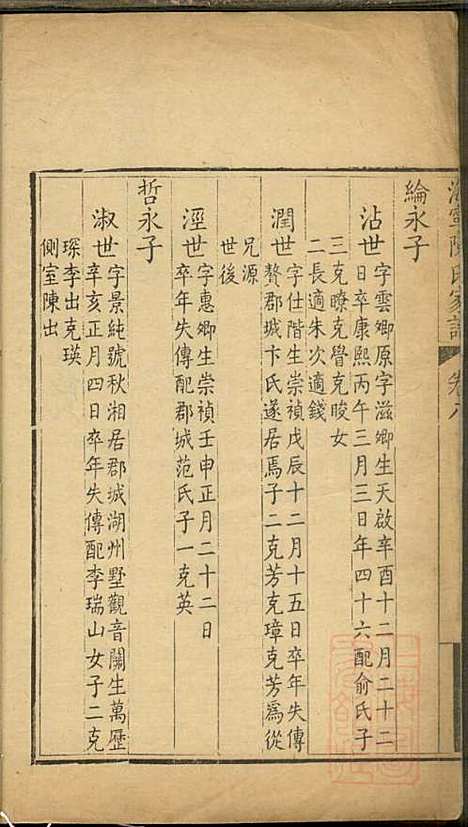 海寧陳氏家譜 卷八
綸永子
沾世 字雲卿原字滋卿生天啟辛酉十二月二十二
日卒康熙丙午三月三日年四十六配俞氏子
三克瞭克覺克晙女
二長適朱次適錢
潤世 字仕階生崇禎戊辰十二月十五日卒年失傳
贅郡城卞氏遂居焉子二克芳克璋克芳為從
兄源
世後
溼世 字惠卿生崇禎壬申正月二十二日
卒年失傳配郡城范氏子一克英
哲永子
淑世 字景純號秋湘居郡城湖州墅觀音關生萬歷
辛亥正月四日卒年失傳配李瑞山女子二克
琛李出克瑛
側室陳出